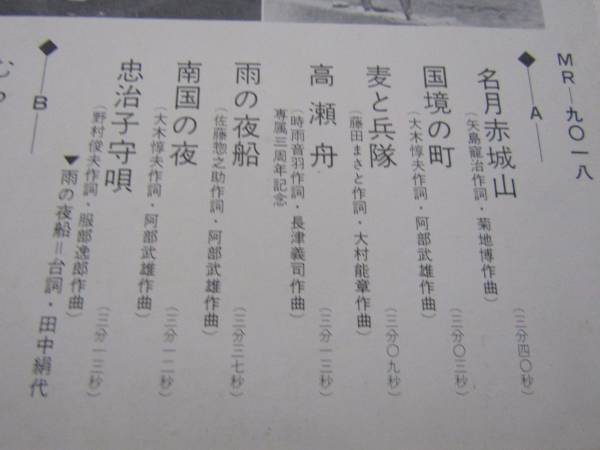 MR—九〇一八
◆—A—
名月赤城山
(矢島寵治作詞・菊地博作曲)
(三分四〇秒)
国境の町
(大木惇夫作詞・阿部武雄作曲)
(三分〇三秒)
麦と兵隊
(藤田まさと作詞・大村能章作曲)
(三分〇九秒)
高瀬舟
(時雨音羽作詞・長津義司作曲)
専属三周年記念
(三分一三秒)
雨の夜船
(佐藤惣之助作詞・阿部武雄作曲)
(三分三七秒)
南国の夜
(大木惇夫作詞・阿部武雄作曲)
(三分一二秒)
忠治子守唄
(野村俊夫作詞・服部逸郎作曲)
(三分一三秒)
▼雨の夜船=台詞・田中絹代
◆—B—